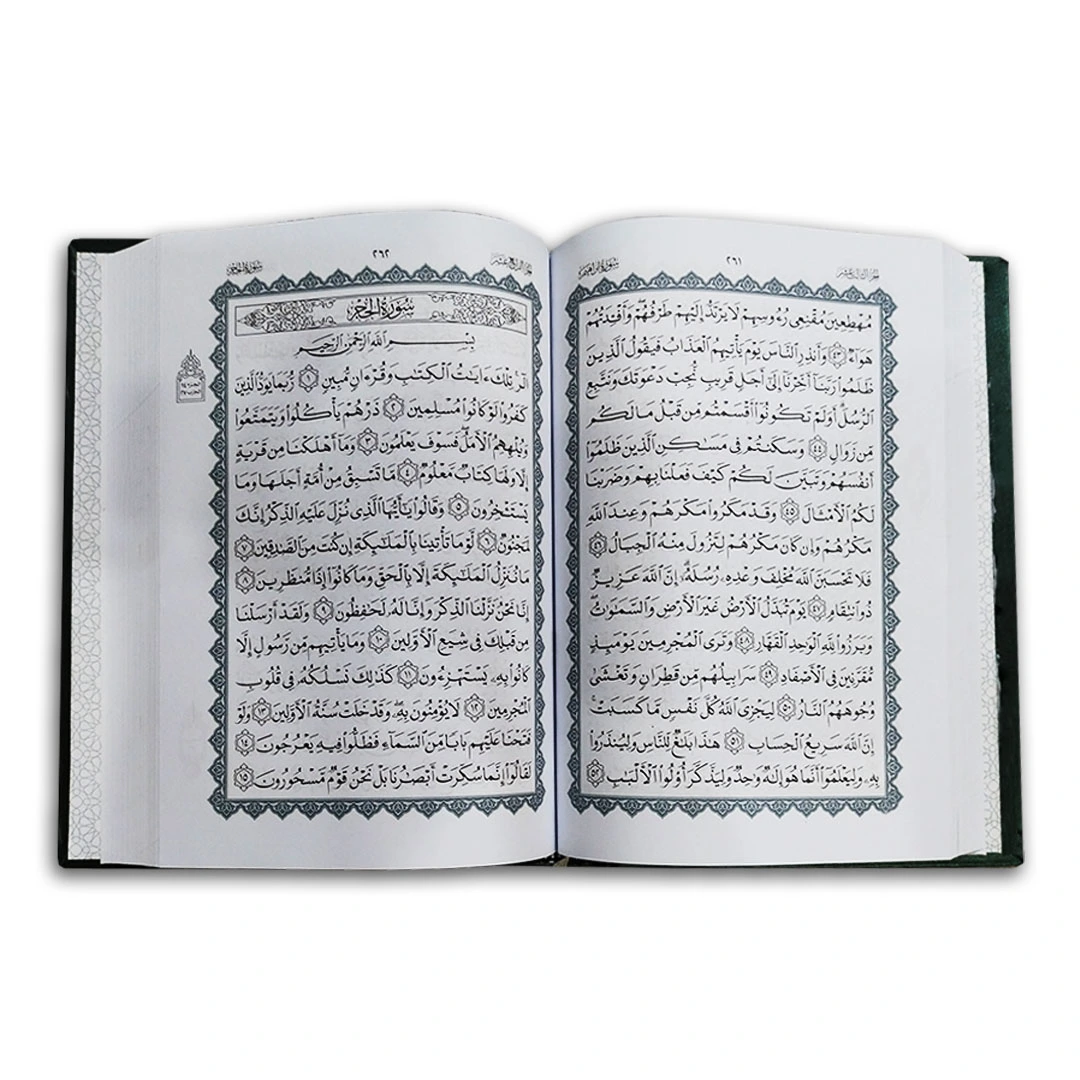 الجزء الثالث عشر
٢٦١
سورة إبراهيم
مُهْطِعِينَ مُقْنِعِى رُءُوسِهِمْ لَا يَرْتَدُّ إِلَيْهِمْ طَرْفُهُمْ وَأَفْـِٔدَتُهُمْ
هَوَآءٌ ٤٣ وَأَنذِرِ ٱلنَّاسَ يَوْمَ يَأْتِيهِمُ ٱلْعَذَابُ فَيَقُولُ ٱلَّذِينَ
ظَلَمُوا۟ رَبَّنَآ أَخِّرْنَآ إِلَىٰٓ أَجَلٍ قَرِيبٍ نُّجِبْ دَعْوَتَكَ وَنَتَّبِعِ
ٱلرُّسُلَ أَوَلَمْ تَكُونُوٓا۟ أَقْسَمْتُم مِّن قَبْلُ مَا لَكُم
مِّن زَوَالٍ ٤٤ وَسَكَنتُمْ فِى مَسَـٰكِنِ ٱلَّذِينَ ظَلَمُوٓا۟
أَنفُسَهُمْ وَتَبَيَّنَ لَكُمْ كَيْفَ فَعَلْنَا بِهِمْ وَضَرَبْنَا
لَكُمُ ٱلْأَمْثَالَ ٤٥ وَقَدْ مَكَرُوا۟ مَكْرَهُمْ وَعِندَ ٱللَّهِ
مَكْرُهُمْ وَإِن كَانَ مَكْرُهُمْ لِتَزُولَ مِنْهُ ٱلْجِبَالُ ٤٦
فَلَا تَحْسَبَنَّ ٱللَّهَ مُخْلِفَ وَعْدِهِۦ رُسُلَهُۥٓ إِنَّ ٱللَّهَ عَزِيزٌ
ذُو ٱنتِقَامٍ ٤٧ يَوْمَ تُبَدَّلُ ٱلْأَرْضُ غَيْرَ ٱلْأَرْضِ وَٱلسَّمَـٰوَٰتُ
وَبَرَزُوا۟ لِلَّهِ ٱلْوَٰحِدِ ٱلْقَهَّارِ ٤٨ وَتَرَى ٱلْمُجْرِمِينَ يَوْمَئِذٍ
مُّقَرَّنِينَ فِى ٱلْأَصْفَادِ ٤٩ سَرَابِيلُهُم مِّن قَطِرَانٍ وَتَغْشَىٰ
وُجُوهَهُمُ ٱلنَّارُ ٥٠ لِيَجْزِىَ ٱللَّهُ كُلَّ نَفْسٍ مَّا كَسَبَتْ
إِنَّ ٱللَّهَ سَرِيعُ ٱلْحِسَابِ ٥١ هَـٰذَا بَلَـٰغٌ لِّلنَّاسِ وَلِيُنذَرُوا۟
بِهِۦ وَلِيَعْلَمُوٓا۟ أَنَّمَا هُوَ إِلَـٰهٌ وَٰحِدٌ وَلِيَذَّكَّرَ أُو۟لُوا۟ ٱلْأَلْبَـٰبِ ٥٢
الجزء الرابع عشر
٢٦٢
سورة الحجر
سُورَةُ الحِجْرِ
بِسْمِ ٱللَّهِ ٱلرَّحْمَـٰنِ ٱلرَّحِيمِ
الٓر تِلْكَ ءَايَـٰتُ ٱلْكِتَـٰبِ وَقُرْءَانٍ مُّبِينٍ ١ رُّبَمَا يَوَدُّ ٱلَّذِينَ
كَفَرُوا۟ لَوْ كَانُوا۟ مُسْلِمِينَ ٢ ذَرْهُمْ يَأْكُلُوا۟ وَيَتَمَتَّعُوا۟
وَيُلْهِهِمُ ٱلْأَمَلُ فَسَوْفَ يَعْلَمُونَ ٣ وَمَآ أَهْلَكْنَا مِن قَرْيَةٍ
إِلَّا وَلَهَا كِتَابٌ مَّعْلُومٌ ٤ مَّا تَسْبِقُ مِنْ أُمَّةٍ أَجَلَهَا وَمَا
يَسْتَـْٔخِرُونَ ٥ وَقَالُوا۟ يَـٰٓأَيُّهَا ٱلَّذِى نُزِّلَ عَلَيْهِ ٱلذِّكْرُ إِنَّكَ
لَمَجْنُونٌ ٦ لَّوْ مَا تَأْتِينَا بِٱلْمَلَـٰٓئِكَةِ إِن كُنتَ مِنَ ٱلصَّـٰدِقِينَ ٧
مَا نُنَزِّلُ ٱلْمَلَـٰٓئِكَةَ إِلَّا بِٱلْحَقِّ وَمَا كَانُوٓا۟ إِذًا مُّنظَرِينَ ٨
إِنَّا نَحْنُ نَزَّلْنَا ٱلذِّكْرَ وَإِنَّا لَهُۥ لَحَـٰفِظُونَ ٩ وَلَقَدْ أَرْسَلْنَا
مِن قَبْلِكَ فِى شِيَعِ ٱلْأَوَّلِينَ ١٠ وَمَا يَأْتِيهِم مِّن رَّسُولٍ إِلَّا
كَانُوا۟ بِهِۦ يَسْتَهْزِءُونَ ١١ كَذَٰلِكَ نَسْلُكُهُۥ فِى قُلُوبِ
ٱلْمُجْرِمِينَ ١٢ لَا يُؤْمِنُونَ بِهِۦ وَقَدْ خَلَتْ سُنَّةُ ٱلْأَوَّلِينَ ١٣ وَلَوْ
فَتَحْنَا عَلَيْهِم بَابًا مِّنَ ٱلسَّمَآءِ فَظَلُّوا۟ فِيهِ يَعْرُجُونَ ١٤
لَقَالُوٓا۟ إِنَّمَا سُكِّرَتْ أَبْصَـٰرُنَا بَلْ نَحْنُ قَوْمٌ مَّسْحُورُونَ ١٥